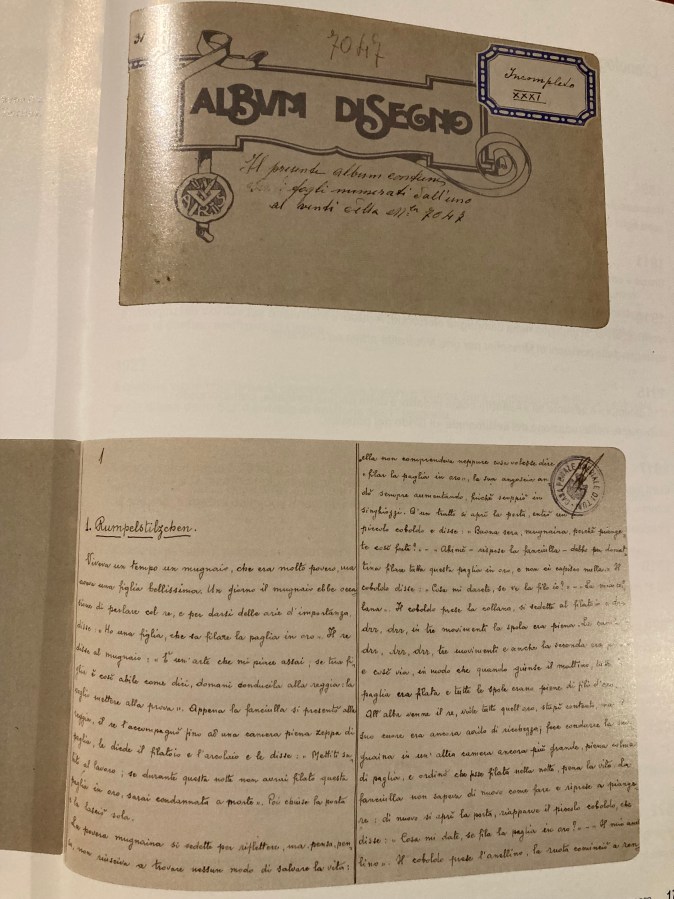 31
7047
Incompleto
XXXI
ALBVM DISEGNO
Il presente album contiene
fogli numerati dall'uno
al venti della Mla 7047
1
1. Rumpelstilzchen.
Viveva un tempo un mugnaio, che era molto povero, ma
aveva una figlia bellissima. Un giorno il mugnaio ebbe occa
sione di parlare col re, e per darsi delle arie d'importanza,
disse: "Ho una figlia, che sa filare la paglia in oro". Il re
disse al mugnaio: "È un'arte che mi piace assai; se tua fi,
glia è così abile come dici, domani conducila alla reggia: la
voglio mettere alla prova". Appena la fanciulla si presentò alla
reggia, il re l'accompagnò fino ad una camera piena zeppa di
paglia, le diede il filatoio e l'arcolaio e le disse: "Mettiti su,
bito al lavoro; se durante questa notte non avrai filato questa
paglia in oro, sarai condannata a morte". Poi chiuse la porta
e la lasciò sola.
La povera mugnaina si sedette per riflettere, ma, pensa, pen
sa, non riusciva a trovare nessun modo di salvare la vita:
ella non comprendeva neppure cosa volesse dire
"filar la paglia in oro", la sua angoscia an
dò sempre aumentando, finché scoppiò in
singhiozzi. D'un tratto si aprì la porta, entrò un
piccolo coboldo e disse: "Buona sera, mugnaina, perché piange
te così forte?" - "Ahimè - rispose la fanciulla - debbo per domat
tina filare tutta questa paglia in oro, e non ci capisco nulla". Il
coboldo disse: "Cosa mi darete, se ve la filo io?" - "La mia col,
lana". Il coboldo prese la collana, si sedette al filatoio e drr,
drr, drr, in tre movimenti la spola era piena.
drr, drr, drr, tre movimenti e anche la seconda era
e così via, in modo che quando giunse il mattino, tutta
paglia era filata e tutte le spole erano piene di fili d'oro.
All'alba venne il re, vide tutto quell'oro, stupì contento, ma
suo cuore era ancora avido di ricchezza; fece condurre la mu
gnaina in un'altra camera ancora più grande, piena
di paglia, e ordinò che fosse filata nella notte, pena la vita. La
fanciulla non sapeva di nuovo come fare e riprese a piange
re; di nuovo si aprì la porta, riapparve il piccolo coboldo, che
disse: "Cosa mi date, se filo la paglia in oro?" - "Il mio anel
lino". Il coboldo prese l'anellino, la ruota cominciò a ron